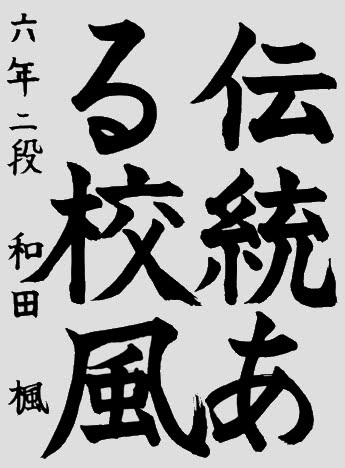 伝統あ
る校風
六年二段 和田 楓